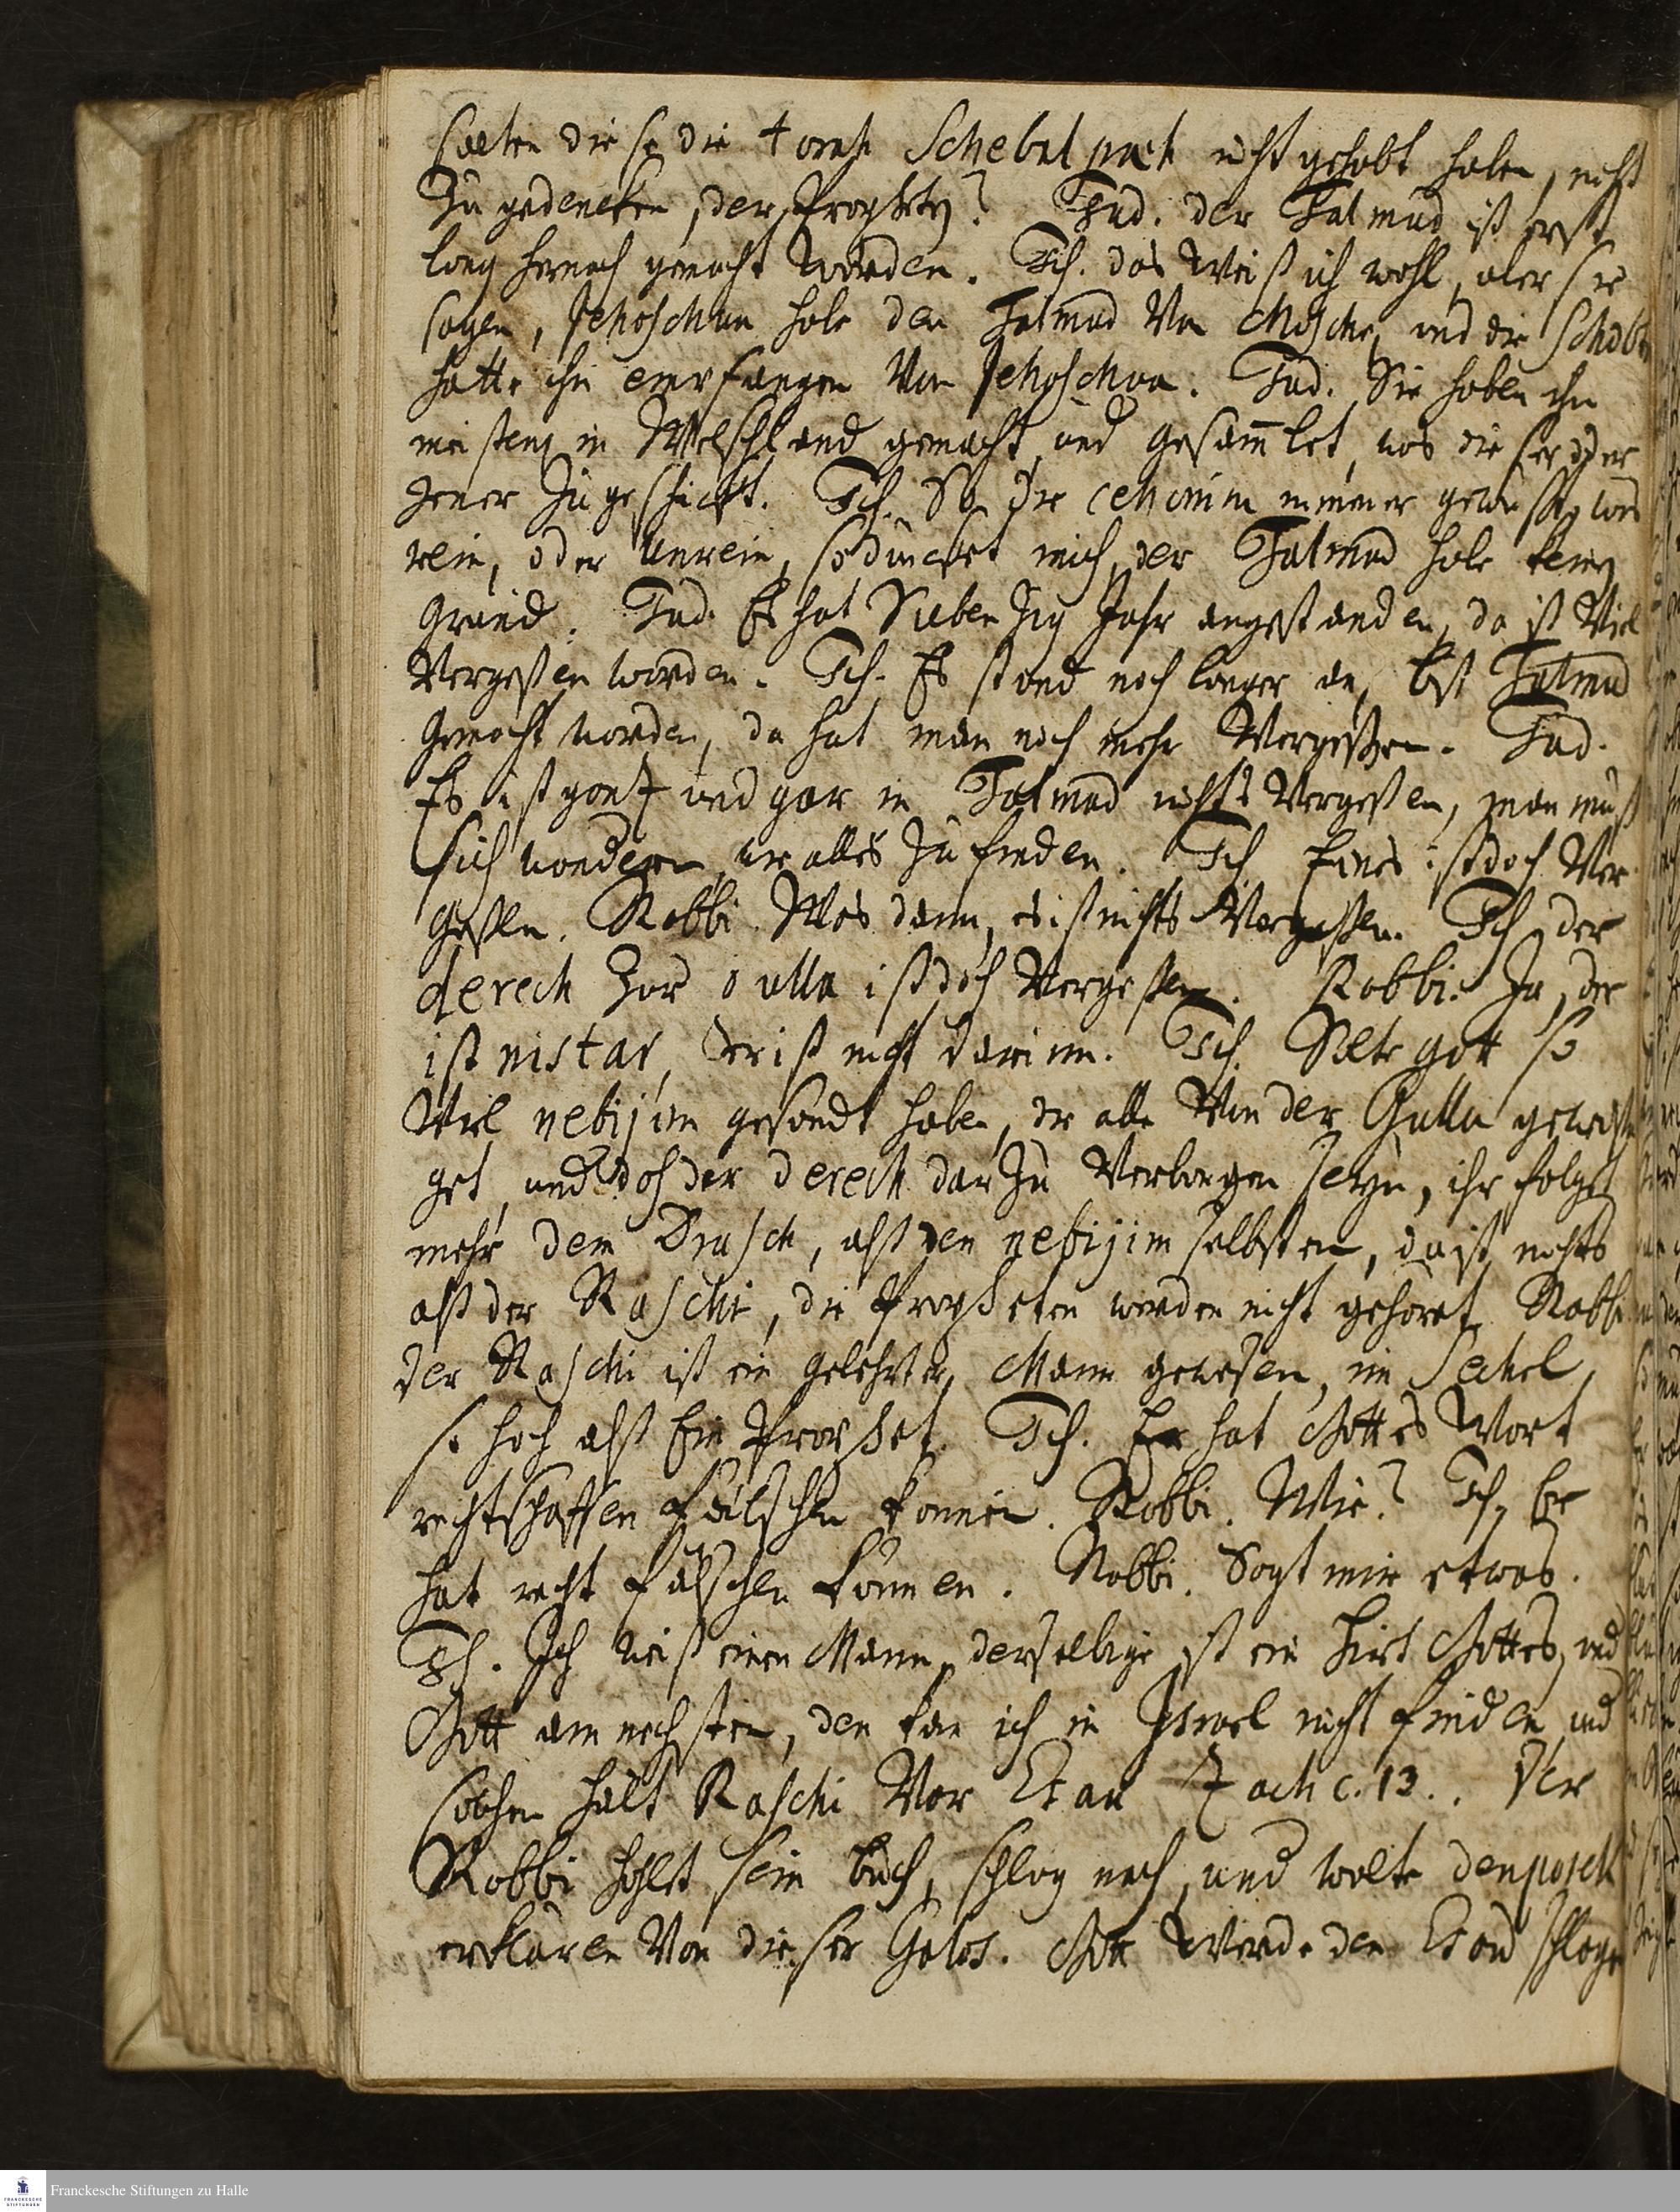 solten die so die torah Schebal paeh nicht gehabt haben, nicht
zu gedencken, der Propheten? Jud. der Talmud ist erst
lang hernach gemacht worden. Ich. das weiß ich wohl, aber sie
sagen, Jehoschua habe den Talmud von Mosche, und die
hatte ihn empfangen von Jehoschua. Jud. Sie haben ihn
meistens in Welschland gemacht und gesam̅let, was dieser oder
jener zugeschickt. Ich. So die cehonim nimmer gewust, was
rein, oder unrein, so duncket mich, der Talmud habe keinen
grund. Jud. Es hat Siebenzig Jahr angestanden, da ist viel
vergeßen worden. Ich. Es stand noch langer an, bist Talmud
gemacht worden, da hat man noch mehr vergeßen. Jud.
Es ist gantz und gar im Talmud nichts vergeßen, man muß
sich wondern, wie alles zu finden. Ich Eines ist doch ver-
geßen. Rabbi. Was dann, es ist nichts vergeßen. Ich, der
derech zur gulla ist doch vergeßen. Rabbi. Ja, der
ist nistar, der ist nicht darinn. Ich. Solte gott so
viel nebijim gesandt haben, die alle von der Gulla geweissa
get, und doch der derech darzu verborgen seyn, ihr folget
mehr dem Drasch, alß den nebijim selbsten, da ist nichts
alß der Raschi, die Propheten werden nicht gehöret. Rabbi
der Raschi ist ein gelehrter Mann gewesen, im Sechel
so hoch alß Ein Prophet. Ich. Er hat Gottes Wort
rechtschaffen fälschen konnen. Rabbi. Wie? Ich, Er
hat recht fälschen konnen. Rabbi. Sagt mir etwas.
Ich. Ich weiß einen Mann, derselbige ist ein Hirt Gottes, und
Gott am nechsten, den kan ich in Israel nicht finden, und
solchen hält Raschi vor Esau Zach c. 13.. Der
Rabbi hohlet sein buch, schlug nach, und wolte den posuk
erklären von dieser Golos. Gott werde den Esau schlagen
Franckesche Stiftungen zu Halle